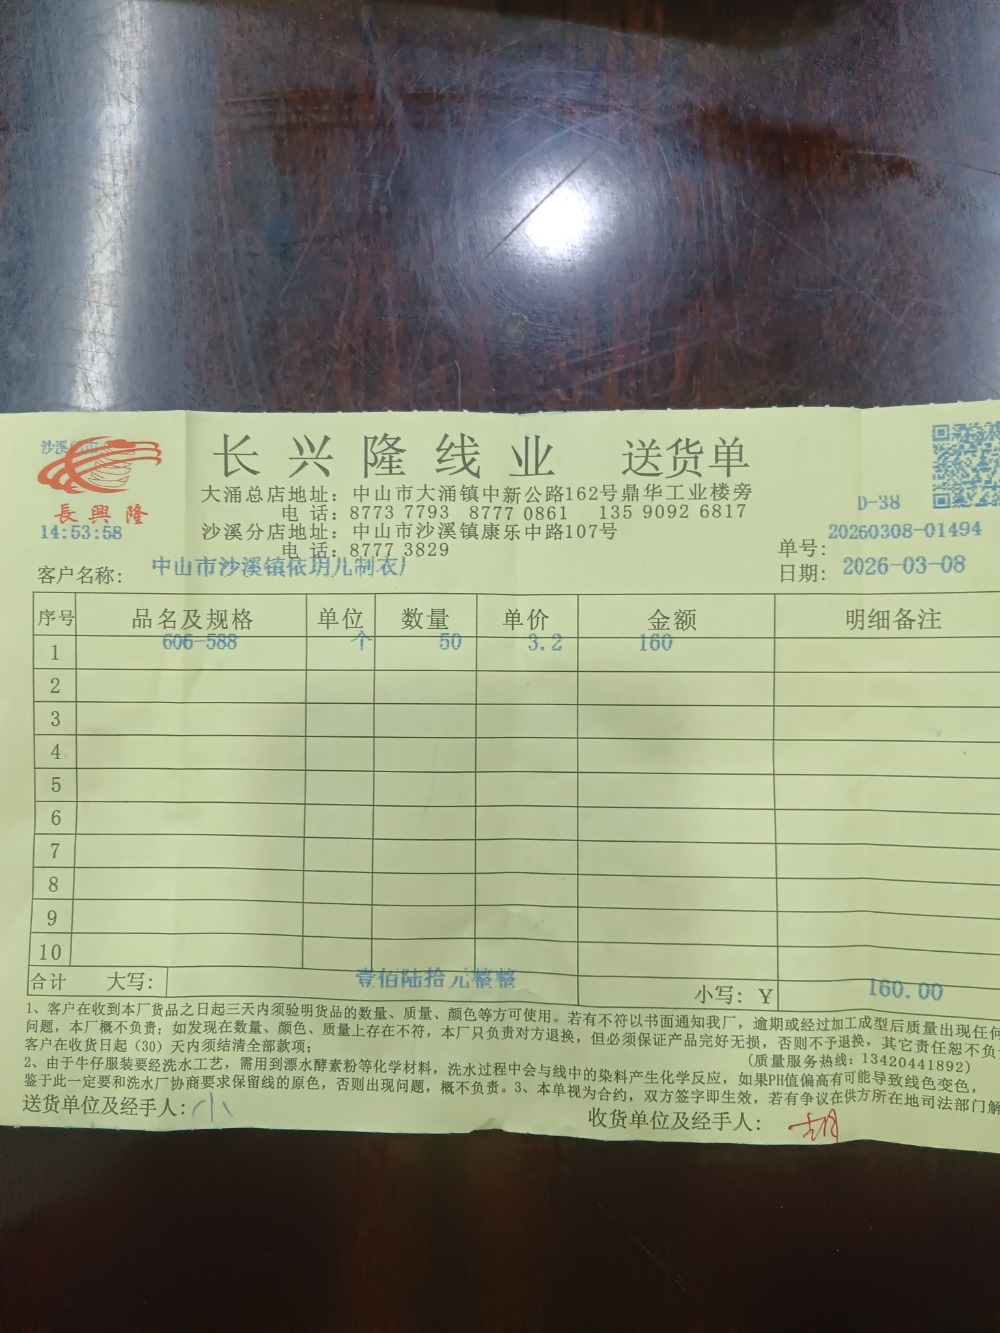 长兴隆线业 送货单
長興隆
14:53:58
大涌总店地址：中山市大涌镇中新公路162号鼎华工业楼旁
电 话：8773 7793 8777 0861 135 9092 6817
沙溪分店地址：中山市沙溪镇康乐中路107号
电 话：8777 3829
D-38
单号：20260308-01494
日期：2026-03-08
客户名称：中山市沙溪镇依玥儿制衣厂
序号 品名及规格 单位 数量 单价 金额 明细备注
1 606-588 个 50 3.2 160
2
3
4
5
6
7
8
9
10
合计 大写：壹佰陆拾元整整 小写：Y 160.00
1、客户在收到本厂货品之日起三天内须验明货品的数量、质量、颜色等方可使用。若有不符以书面通知我厂，逾期或经过加工成型后质量出现任何
问题，本厂概不负责；如发现在数量、颜色、质量上存在不符，本厂只负责对方退换，但必须保证产品完好无损，否则不予退换，其它责任恕不负
客户在收货日起（30）天内须结清全部款项；
(质量服务热线：13420441892)
2、由于牛仔服装要经洗水工艺，需用到漂水酵素粉等化学材料，洗水过程中会与线中的染料产生化学反应，如果PH值偏高有可能导致线色变色，
鉴于此一定要和洗水厂协商要求保留线的原色，否则出现问题，概不负责。3、本单视为合约，双方签字即生效，若有争议在供方所在地司法部门解
送货单位及经手人：小
收货单位及经手人：胡